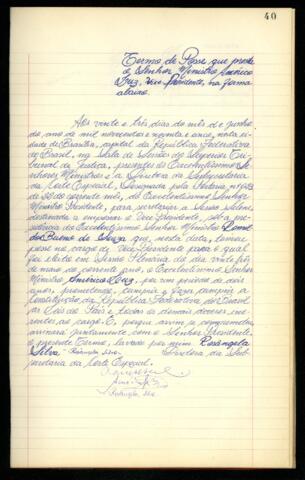 40
Termo de Posse que presta
o Senhor Ministro Américo
Luz, Vice-Presidente, na forma
abaixo.
Aos vinte e três dias do mês de junho
do ano de mil novecentos e noventa e cinco, nesta ci-
dade de Brasília, capital da República Federativa
do Brasil, na Sala de Sessões do Superior Tri-
bunal de Justiça, presentes os Excelentíssimos Se-
nhores Ministros e a Diretora da Subsecretaria
da Corte Especial, designada pela Portaria nº
de 22 do corrente mês, do Excelentíssimo Senhor
Ministro Presidente, para secretariar a Sessão Solene,
destinada a empossar o Vice-Presidente, sob a pre-
sidência do Excelentíssimo Senhor Ministro Romil-
do Bueno de Souza que, nesta data, tomou
posse no cargo de Vice-Presidente para o qual
foi eleito em Sessão Plenária do dia vinte
de maio do corrente ano, o Excelentíssimo Senhor
Ministro Américo Luz, por um período de dois
anos, prometendo, cumprir e fazer cumprir a
Constituição da República Federativa do Brasil
as Leis do País e todos os demais deveres ine-
rentes ao cargo. E, porque assim se comprometeu,
assinará juntamente com o Senhor Presidente,
o presente Termo, lavrado por mim Rosângela
Silva, Rosângela Silva Diretora da Sub-
secretaria da Corte Especial.